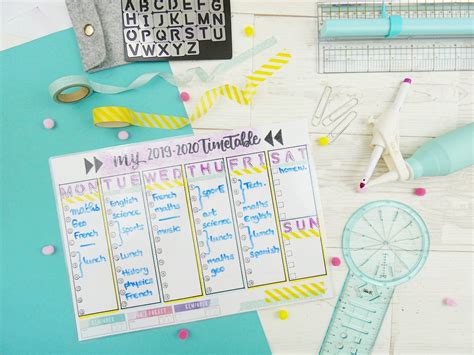 ABCDEFG
HIJKLMN
OPQRSTU
VWXYZ
my 2019-2020 TimeTable
MON TUE WED THU FRI SAT
maths
Geo
French
lunch
English
science
sports
lunch
History
physics
French
French
maths
music
lunch
sports
art
science
lunch
maths
geo
Tech.
maths
English
lunch
spanish
homew.
SUN